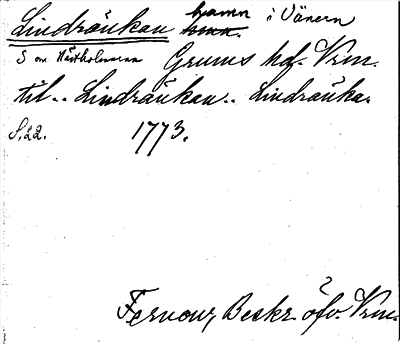 Lindräukan hamn i Vänern
S om Hästholmarna Grums hd. Vrm.
til.. Lindräukan.. Lindräuka.
S. 22. 1773.
Fernow, Beskr. öfv. Vrm.